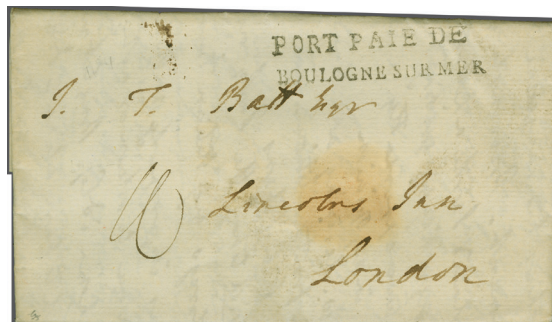 PORT PAIE DE
BOULOGNE SUR MER
J. T. Batt Esqr
Lincolns Inn
London